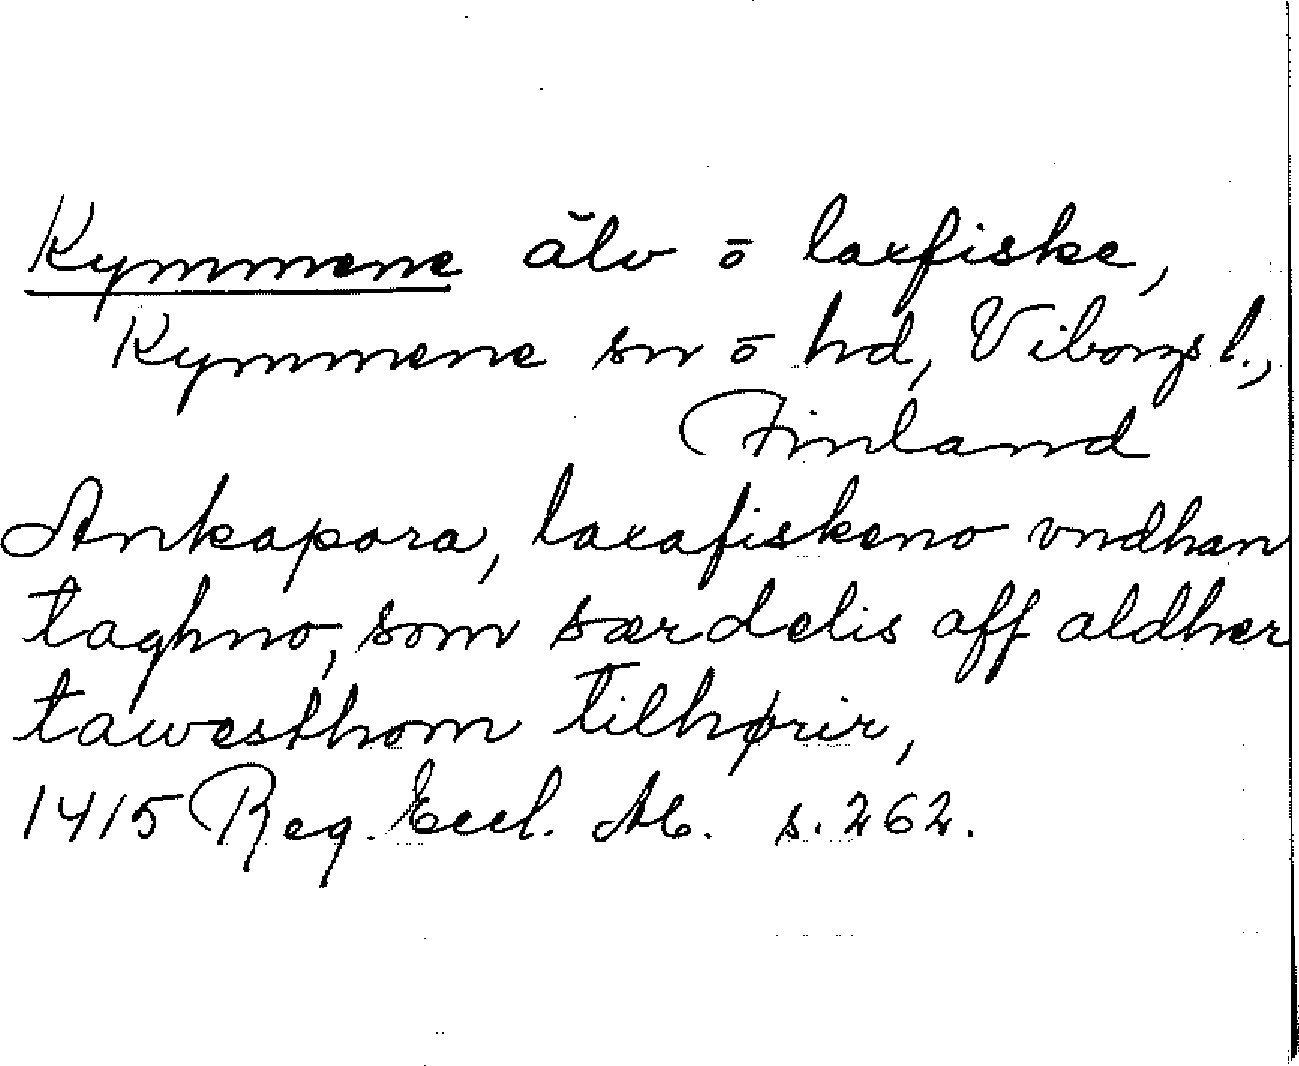 Kymmene älv ō laxfiske,
Kymmene sn ō hd, Viborgs l.,
Finland
Ankapora, laxafiskeno vndhan
taghno, som særdelis aff aldher
tawesthom tilhørir,
1415 Reg. Eccl. Ab. s. 262.